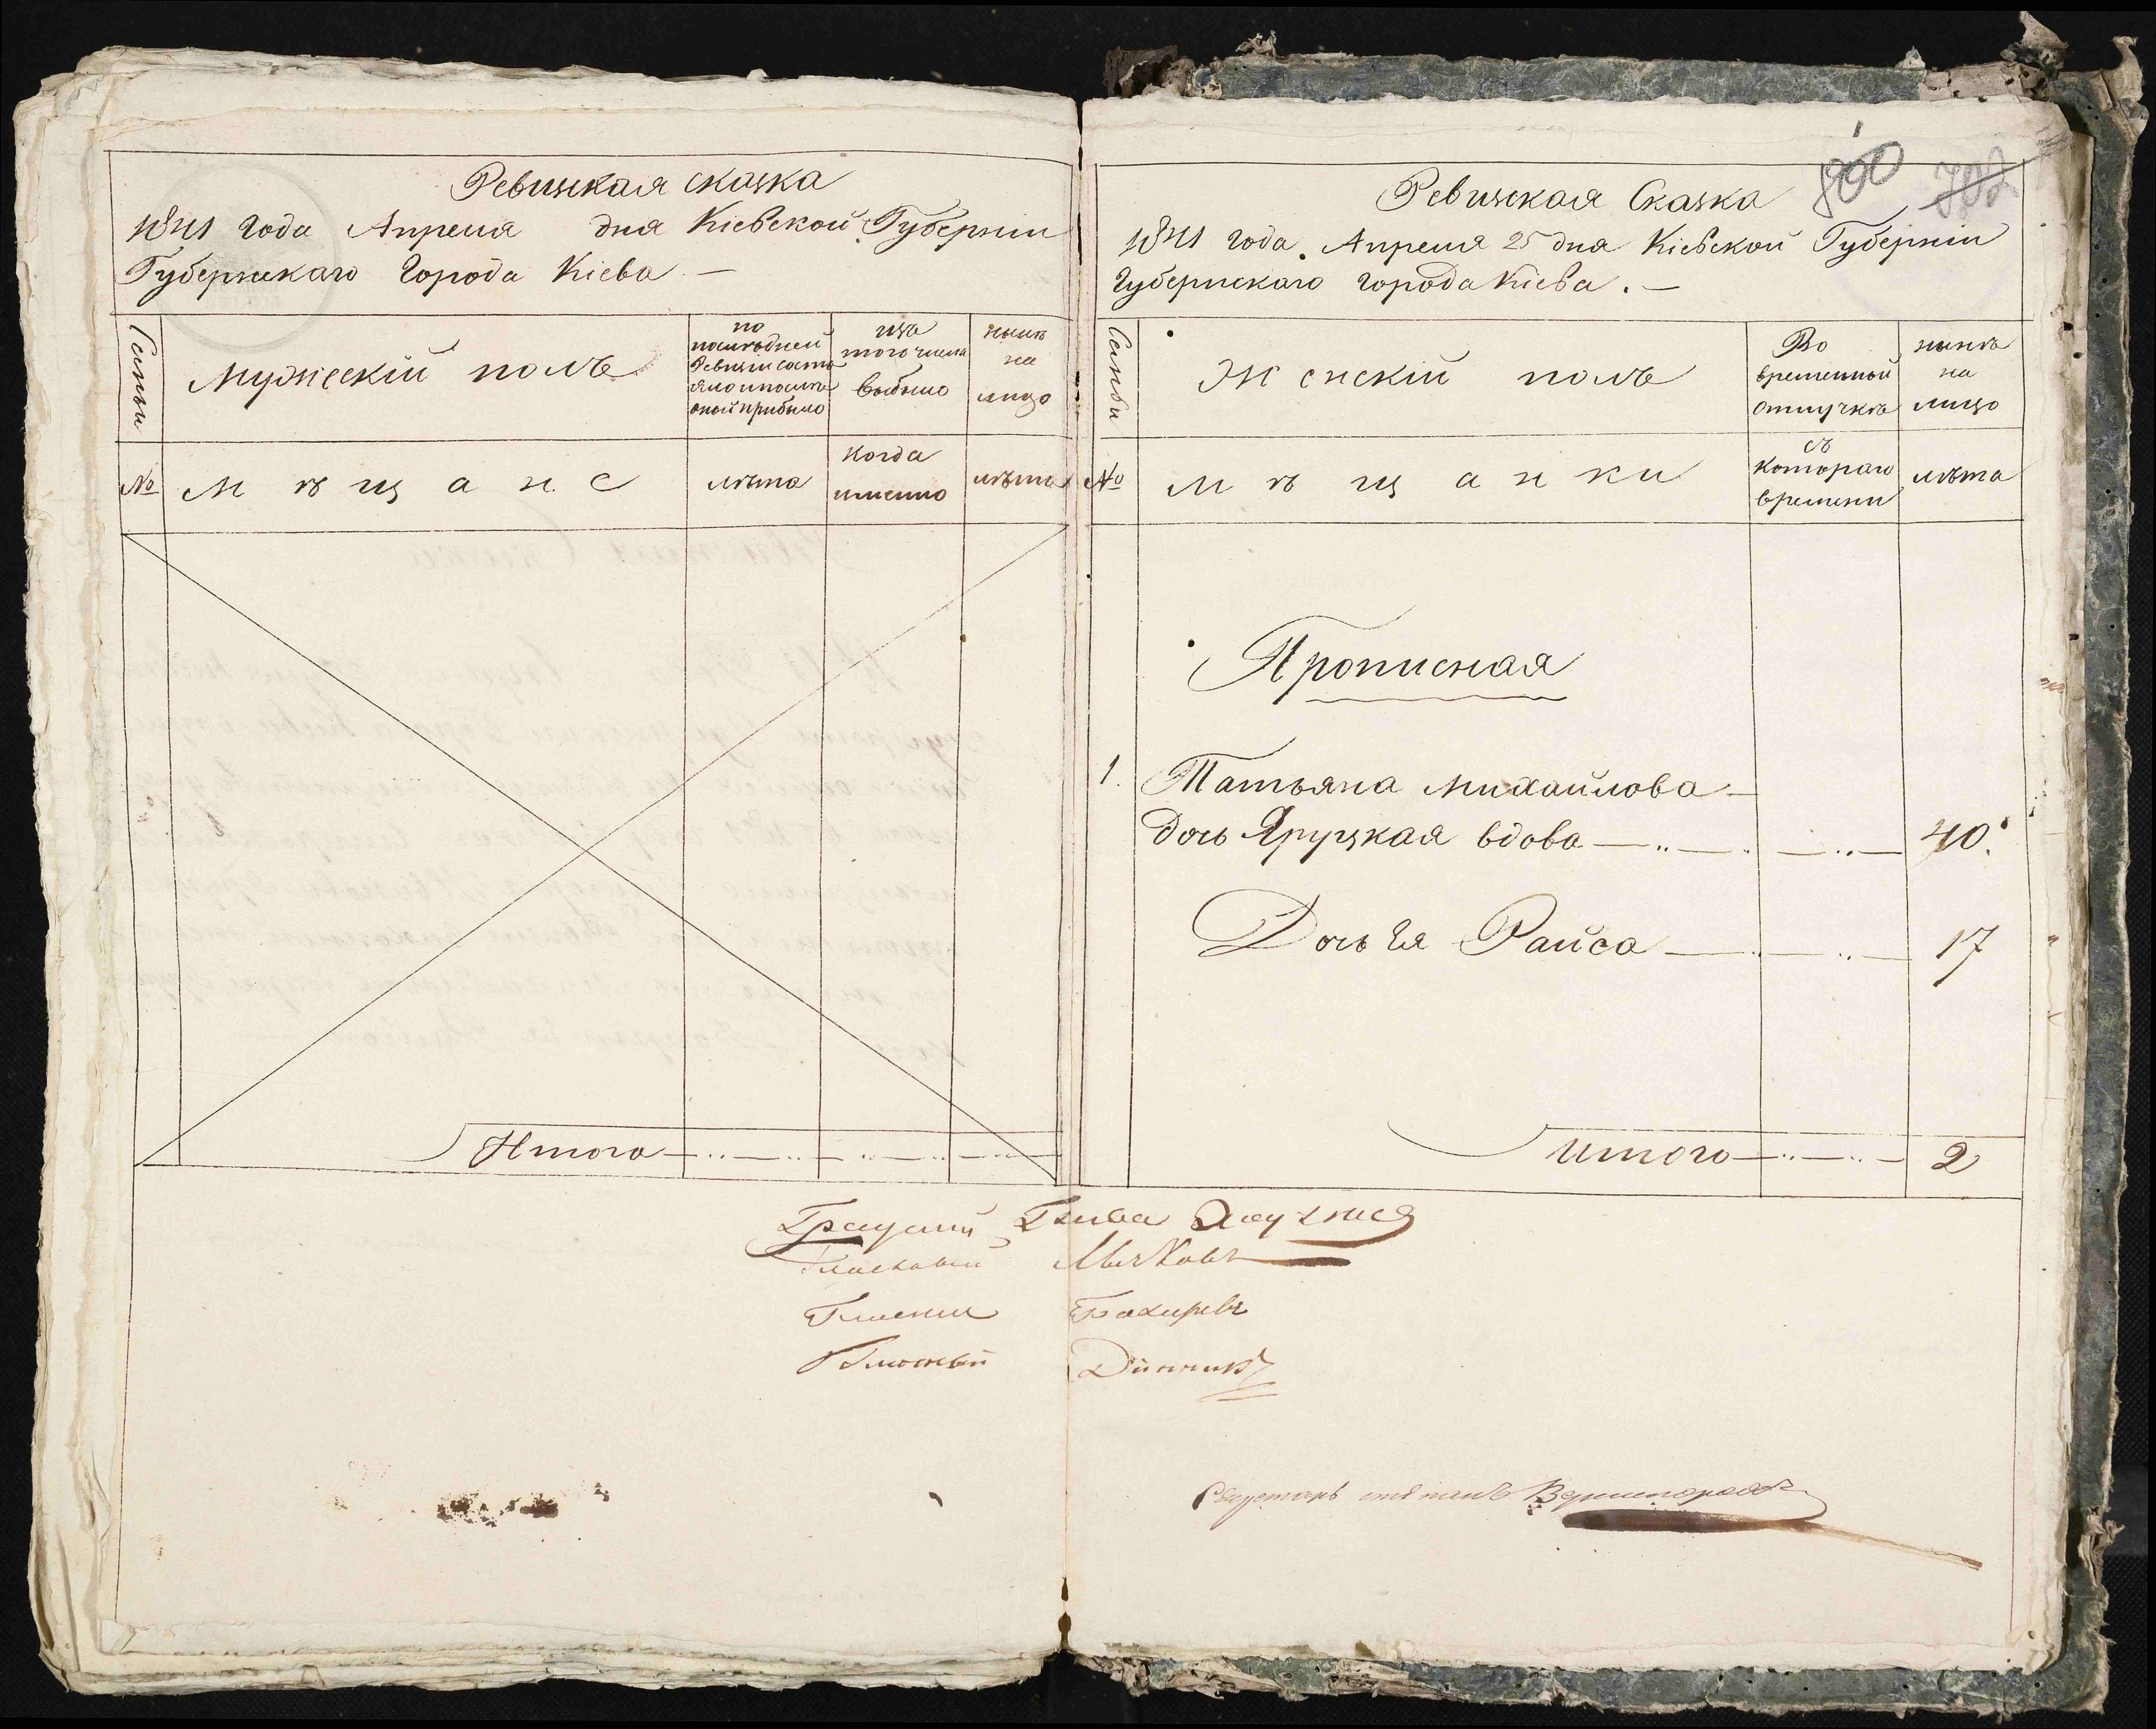 Ревизская сказка
1841 года Апреля дня Кіевской Губерніи
Губернскаго Города Кіева —
Семьи
Мужескій полъ
по
последней
Ревизіи состо
яло и после
оной прибыло
изъ
того числа
выбыло
ныне
на
лицо
№
Мѣщане
лѣта
когда
именно
лѣта
Итого
800
702
Ревизская Сказка
1841 года Апреля 25 дня Кіевской Губерніи
Губернскаго города Кіева. —
Семьи
Женскій полъ
Во
временной
отлучкѣ
нынѣ
на
лицо
№
Мѣщанки
съ
котораго
времени
лѣта
Прописная
1. Татьяна Михайлова
дочь Яруцкая вдова 40.
Дочь Ея Раиса 17
Итого 2
Градский Глава
Гласный
Гласный Бахиревъ
Гласный Динникъ